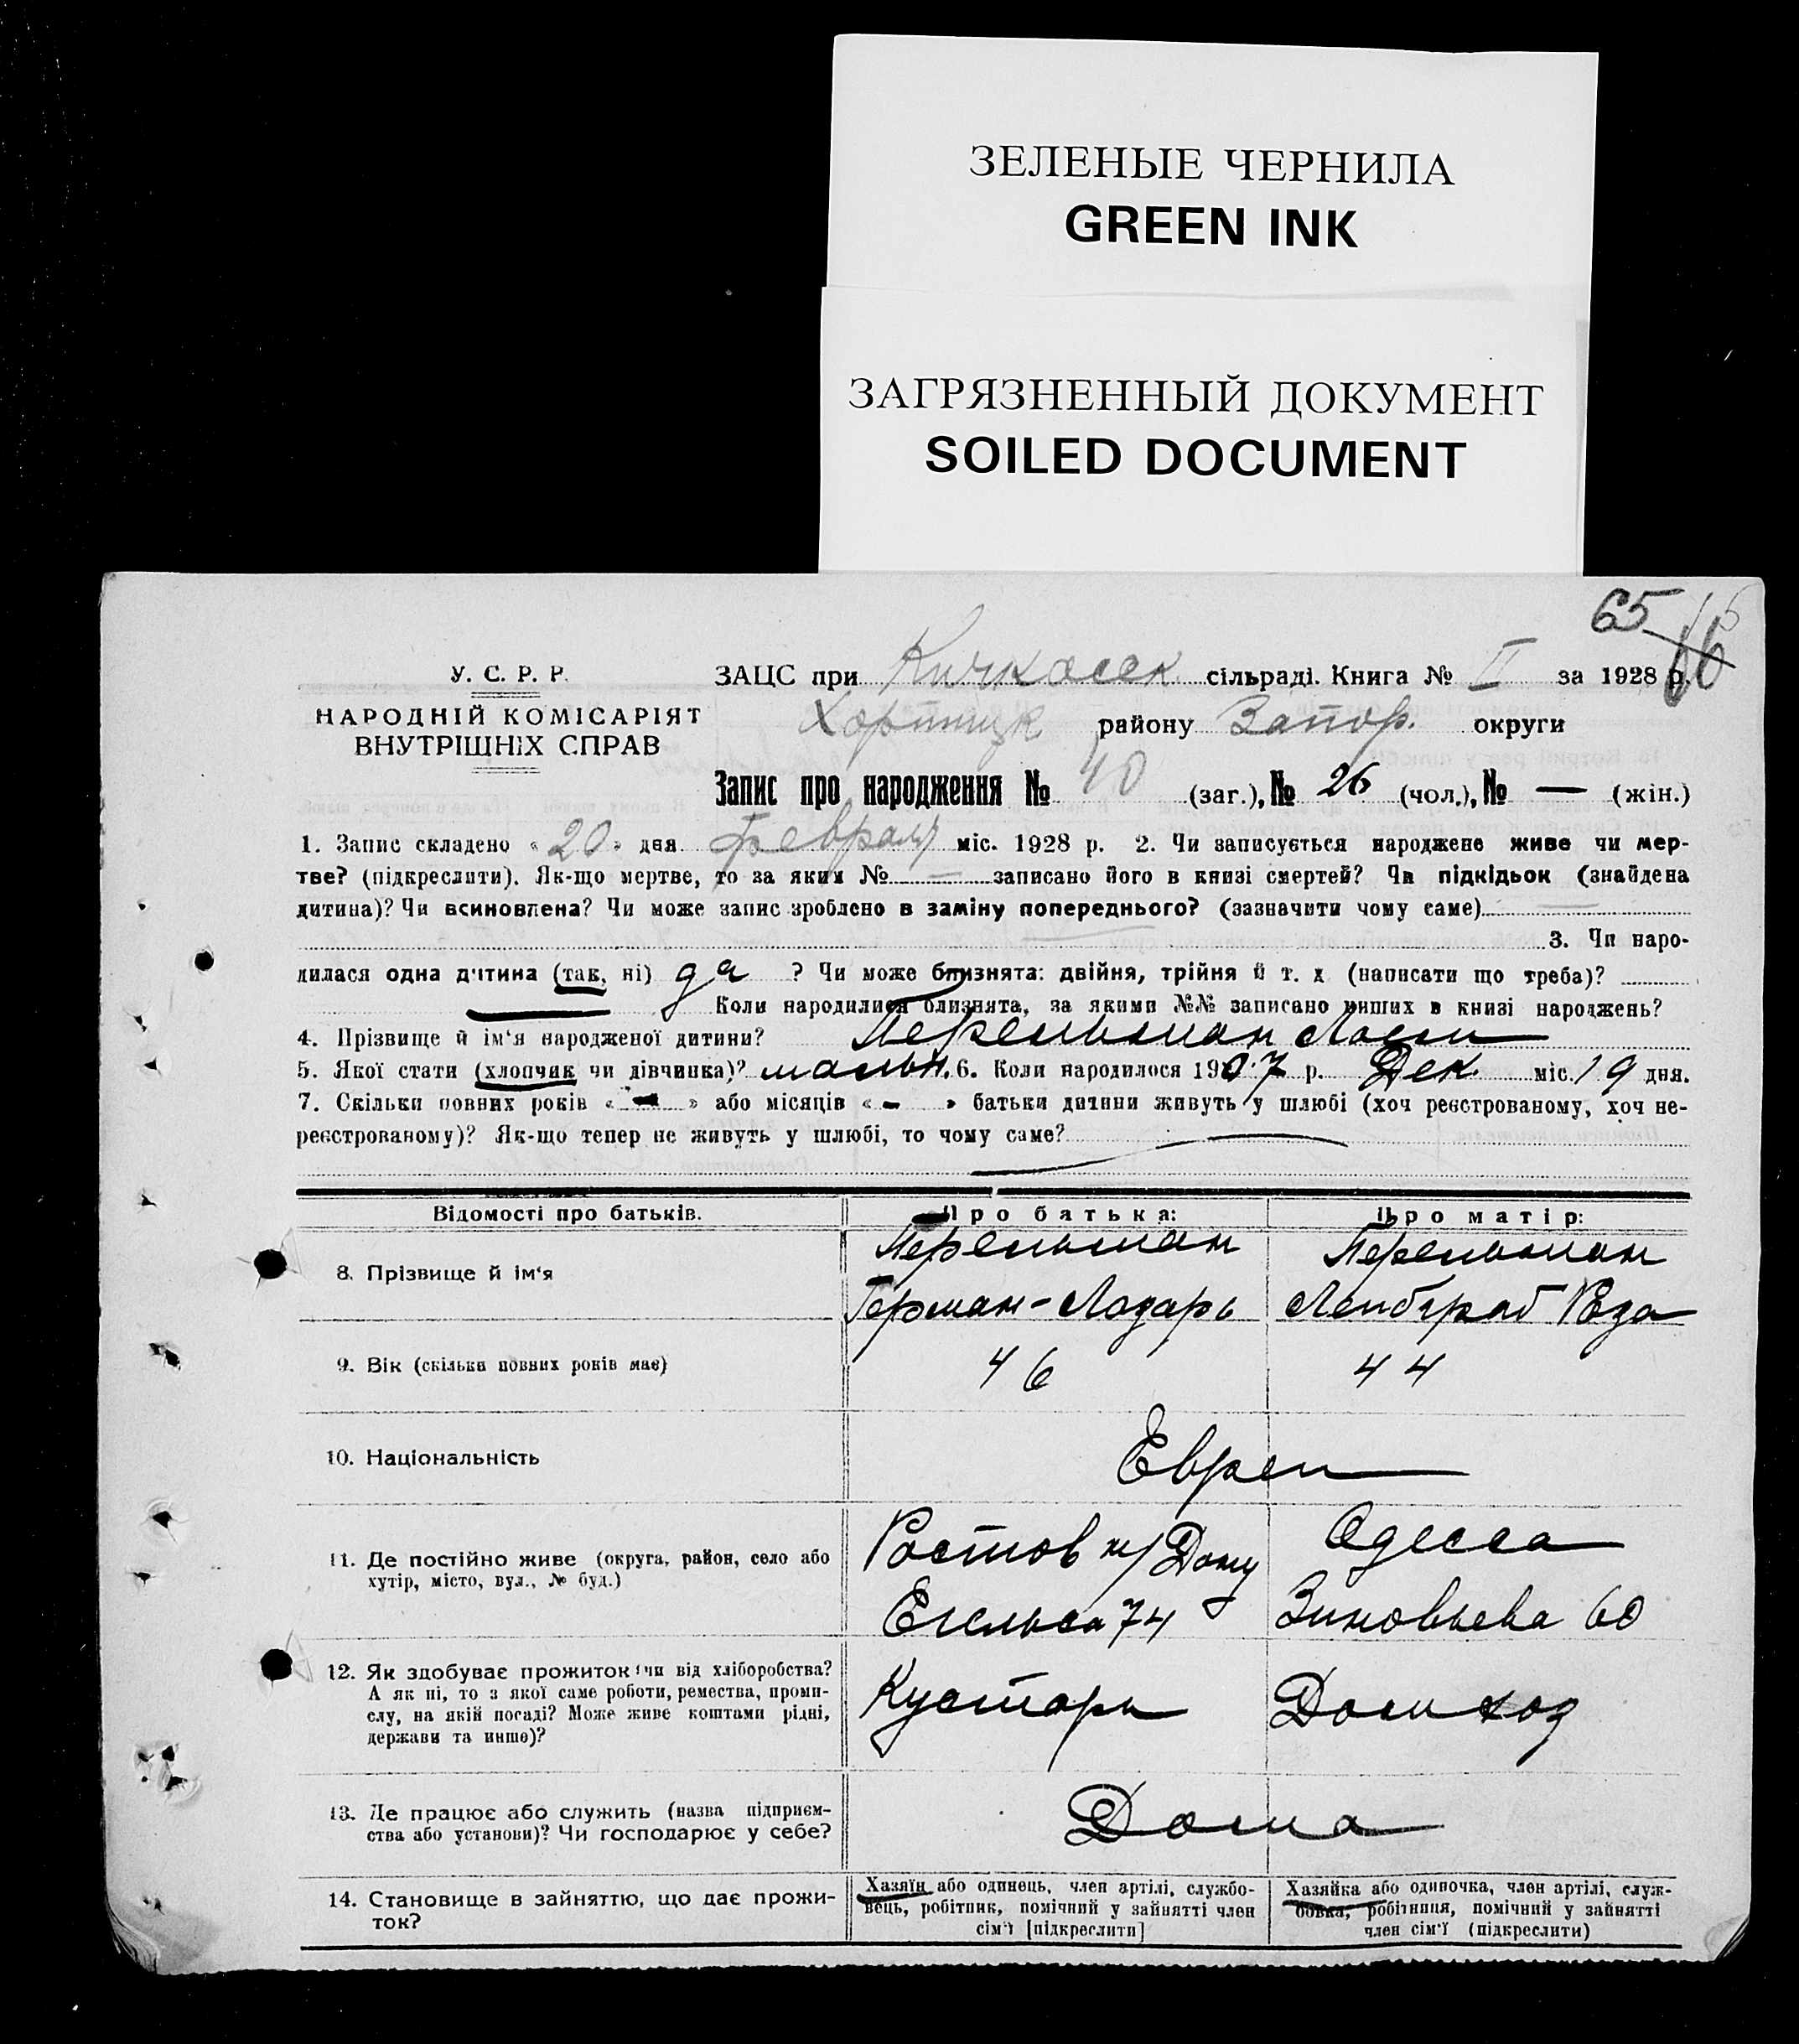 ЗЕЛЕНЫЕ ЧЕРНИЛА
GREEN INK
ЗАГРЯЗНЕННЫЙ ДОКУМЕНТ
SOILED DOCUMENT
65 66
У. С. Р. Р.
НАРОДНІЙ КОМІСАРІЯТ
ВНУТРІШНІХ СПРАВ
ЗАЦС при Кичкасск сільраді. Книга № II за 1928 р.
Хортицк району Запор. округи
Запис про народження № 40 (заг.), № 26 (чол.), № — (жін.)
1. Запис складено «20» дня Февраля міс. 1928 р. 2. Чи записується народжене живе чи мер-
тве? (підкреслити). Як-що мертве, то за яким № — записано його в книзі смертей? Чи підкідьок (знайдена
дитина)? Чи всиновлена? Чи може запис зроблено в заміну попереднього? (зазначити чому саме) —
3. Чи наро-
дилася одна дитина (так, ні) да ? Чи може близнята: двійня, трійня й т. д. (написати що треба)?
— Коли народилися близнята, за якими №№ записано инших в книзі народжень?
4. Прізвище й ім'я народженої дитини? Перельман
5. Якої стати (хлопчик чи дівчинка)? мальч. 6. Коли народилося 1907 р. Дек. міс. 19 дня.
7. Скільки повних років « — » або місяців « — » батьки дитини живуть у шлюбі (хоч реєстрованому, хоч не-
реєстрованому)? Як-що тепер не живуть у шлюбі, то чому саме? —
Відомості про батьків. Про батька: Про матір:
8. Прізвище й ім'я
Перельман Перельман
Герман-Лазарь Роза
9. Вік (скільки повних років має) 46 44
10. Національність Евреи
11. Де постійно живе (округа, район, село або
хутір, місто, вул., № буд.)
Ростов н/Дону Одесса
Енгельса 74 Зиновьева 60
12. Як здобуває прожиток: чи від хліборобства?
А як ні, то з якої саме роботи, ремества, проми-
слу, на якій посаді? Може живе коштами рідні,
держави та инше)?
Кустарь Домхоз
13. Де працює або служить (назва підприєм-
ства або установи)? Чи господарює у себе?
Дома
14. Становище в зайняттю, що дає прожи-
ток?
Хазяїн або одинець, член артілі, службо-
вець, робітник, помічний у зайнятті член
сім'ї [підкреслити]
Хазяйка або одиночка, член артілі, служ-
бовка, робітниця, помічний у зайнятті
член сім'ї (підкреслити)